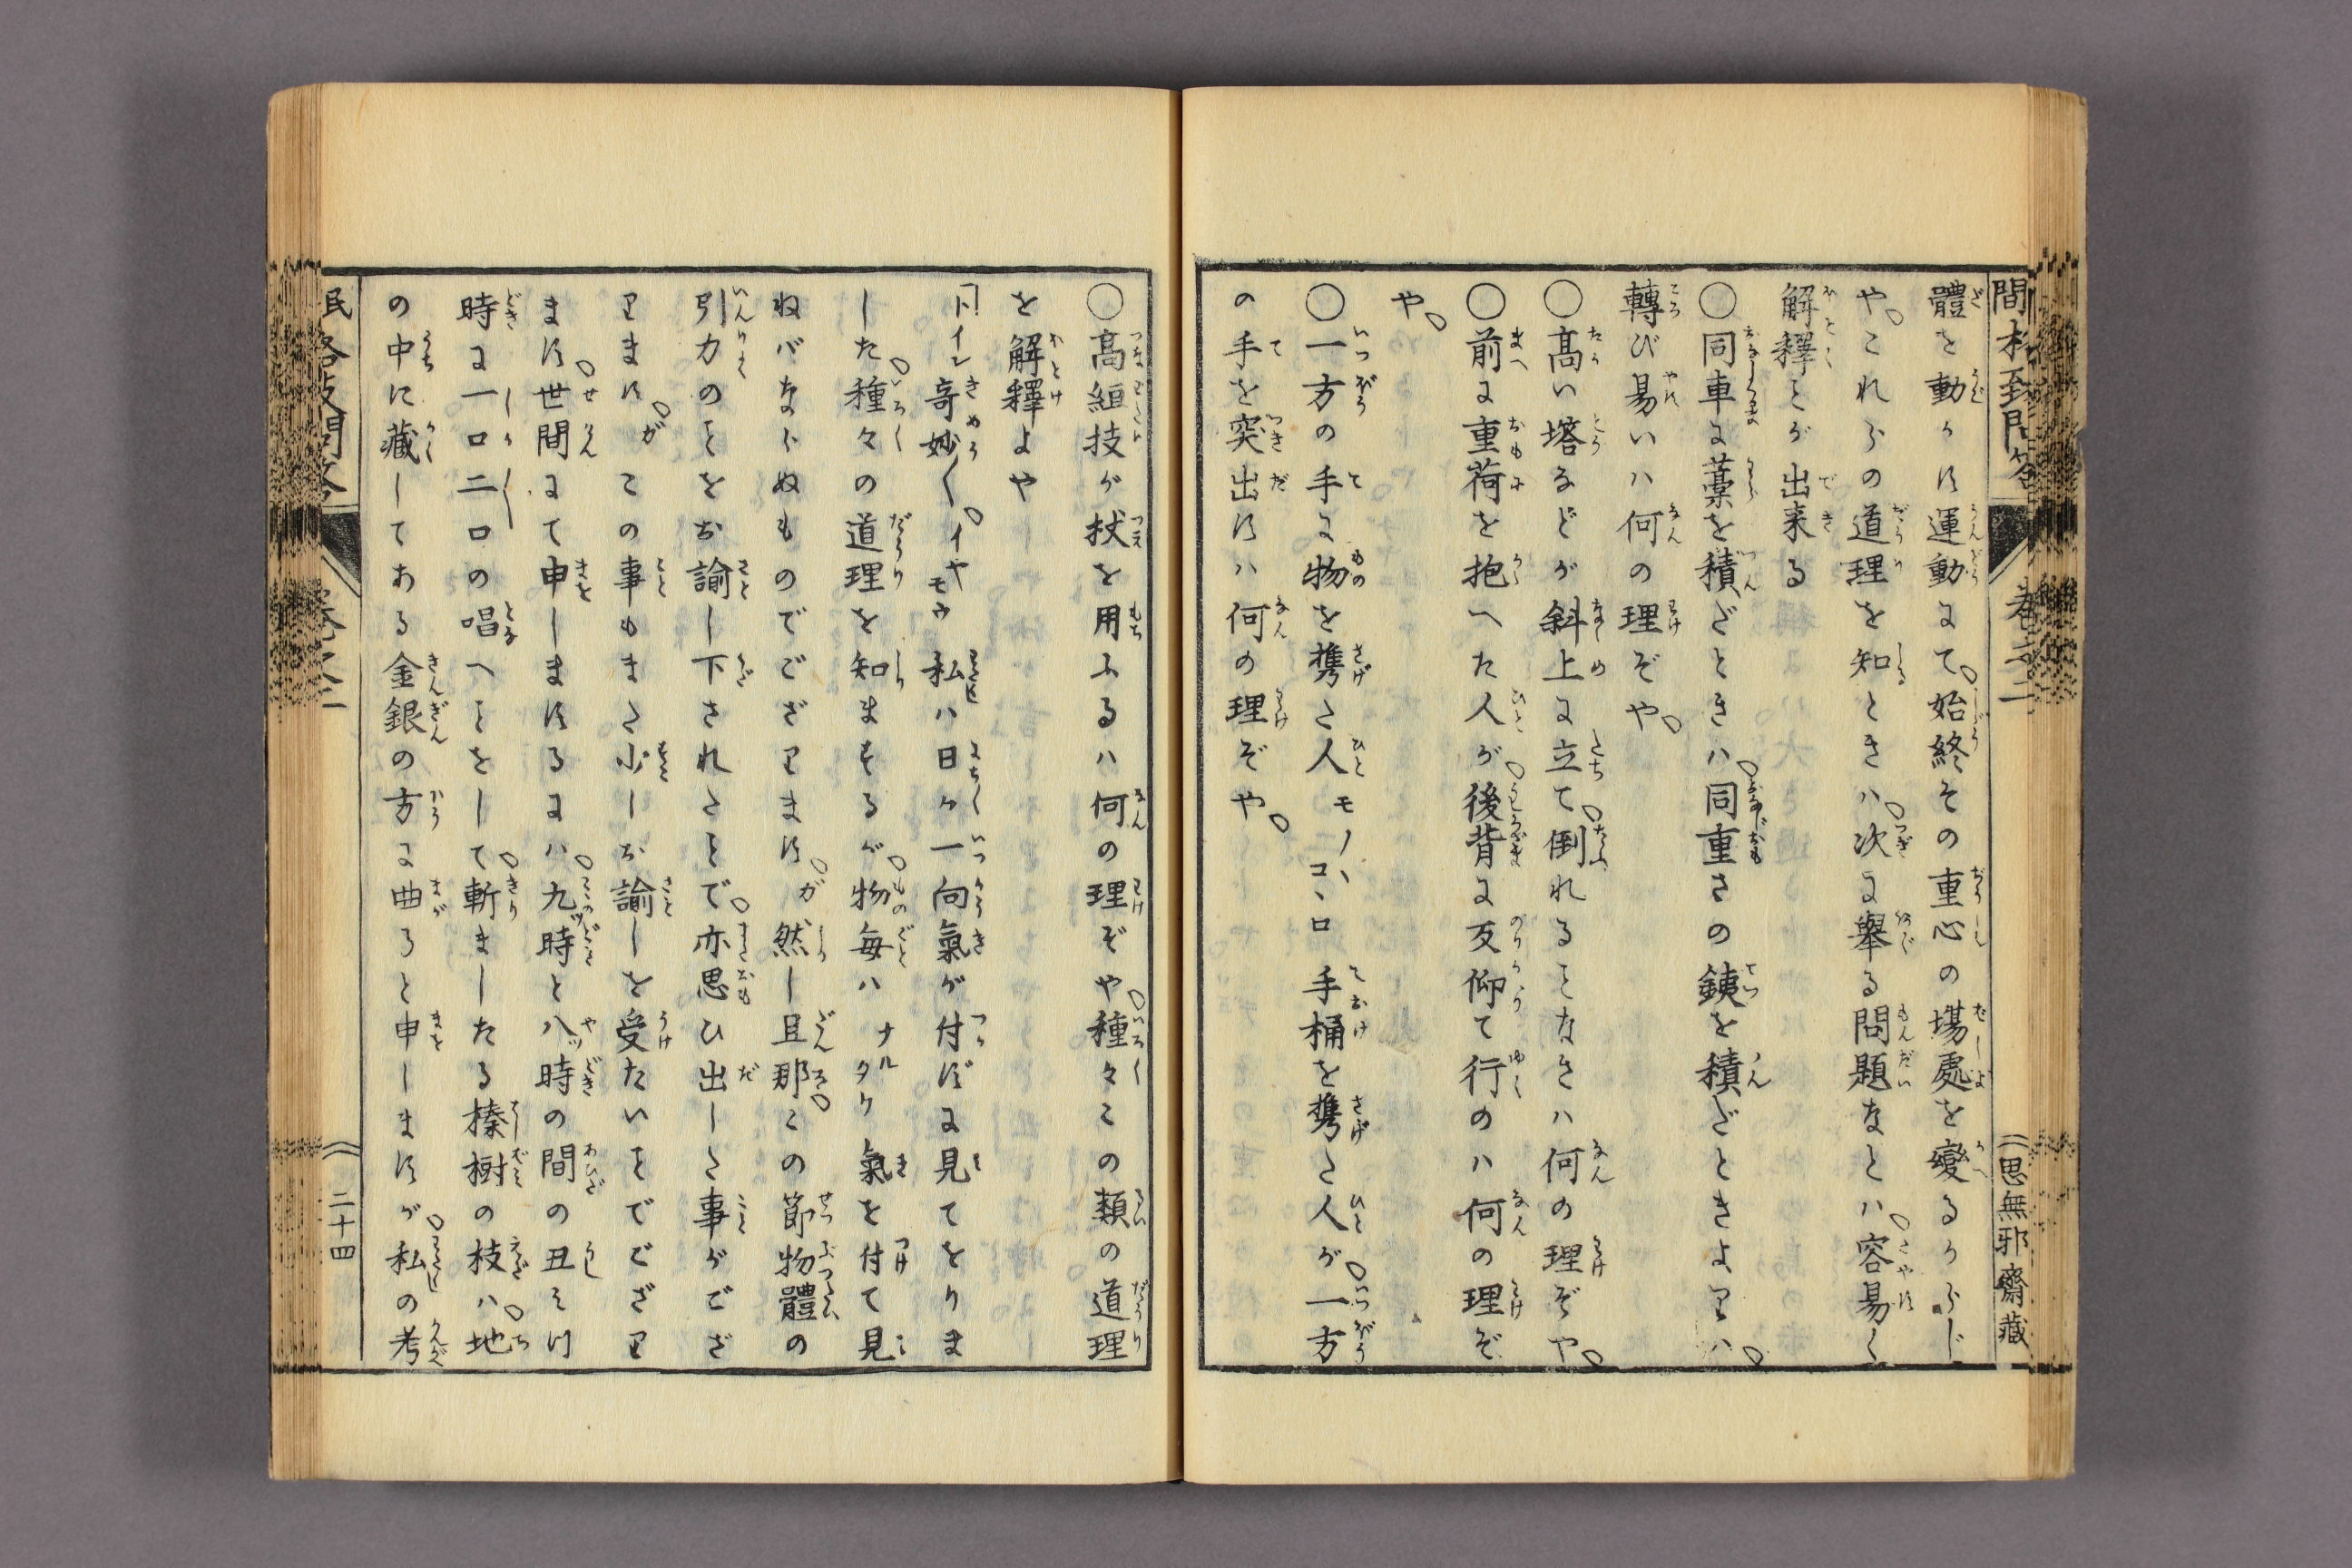 體を動かす運動にて始終その重心の場處を變るからじ
や。これらの道理を知ときハ。次に舉る問題なとハ。容易く
解釋ことが出来る
○同車に藁を積だときハ。同重さの銕を積だときよりハ。
轉び易いハ何の理ぞや。
○高い塔などが斜上に立て。倒れることなきハ何の理ぞや。
○前に重荷を抱へた人が。後背に反仰て行のハ何の理ぞ
や。
○一方の手に物を携た人モノハコヽロ手桶を携た人が。一方
の手を突出すハ何の理ぞや。
○高絙技が杖を用ふるハ何の理ぞや。種々この類の道理
を解釋よや
下イシ竒妙〱。イヤモウ私ハ日々一向氣が付ずに見てをりま
した。種々の道理を知ませるが。物毎ハナルタケ氣を付て見
ねバならぬものでござります。が然し且那。この節物體の
引力のことをお諭し下されたことで。亦思ひ出した事がござ
ります。がこの事もまた少しお諭しを受たいことでござり
ます。世間にて申しまするにハ。九ッ時と八ッ時の間の丑み川
時に一口二口の唱へことをして。斬ましたる榛樹の枝ハ。地
の中に藏してある金銀の方に曲ると申しますが。私の考
二十四
思無邪齋藏